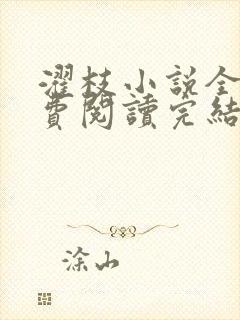 濯枝小説全
費閱讀完結
涂山